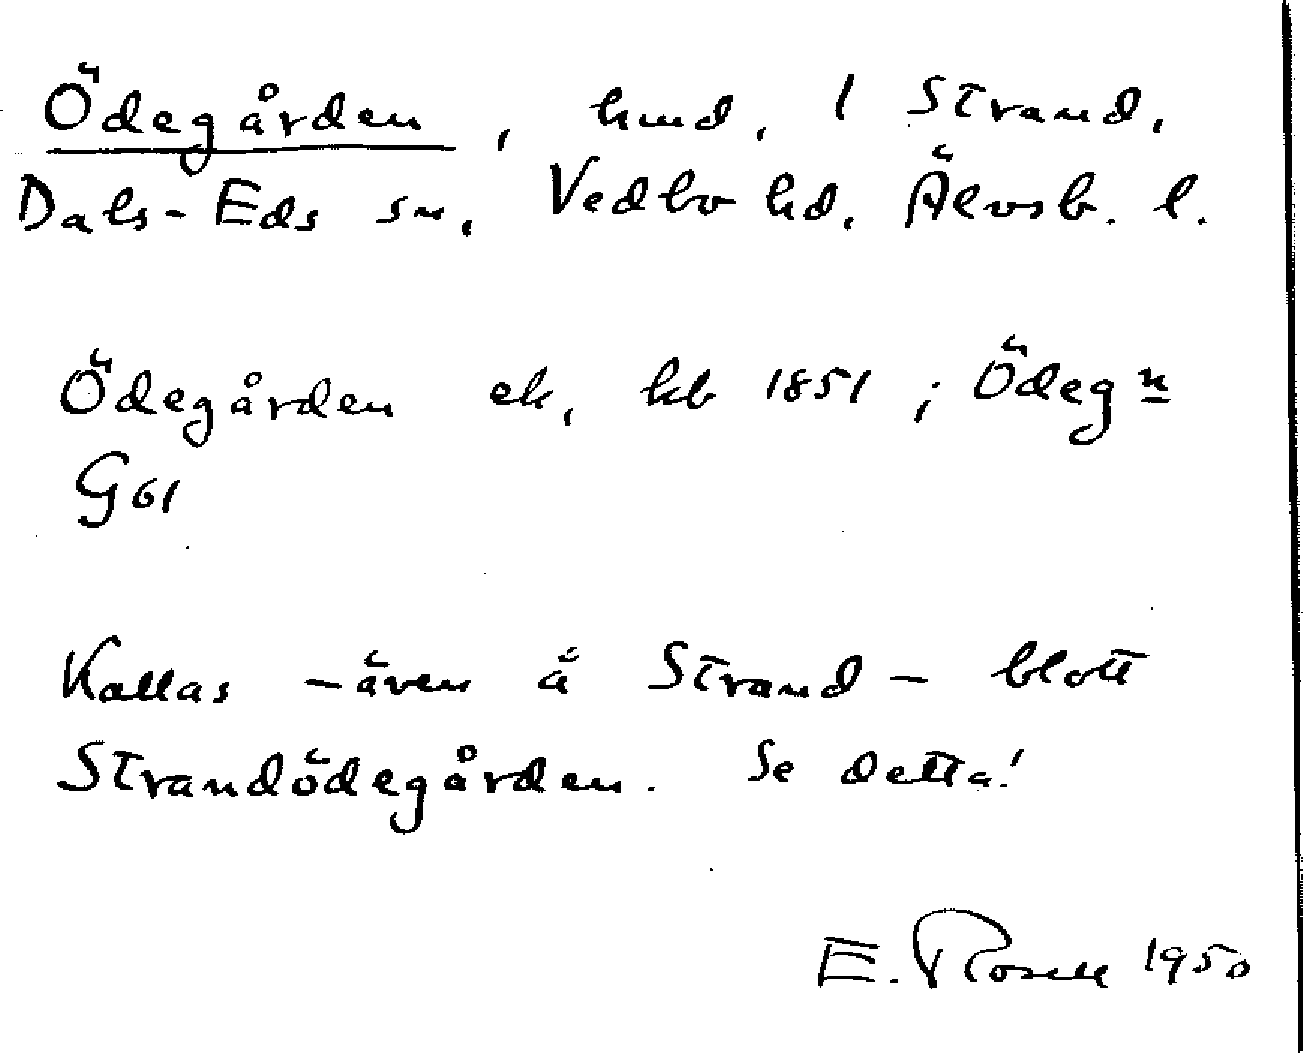 Ödegården, hmd, 1 Strand,
Dals-Eds sn, Vedbo hd, Älvsb. l.
Ödegården ek, kb 1851; Ödeg n
G 61
Kallas - även å Strand - blott
Strandödegården. Se detta!
E. Rosell 1950